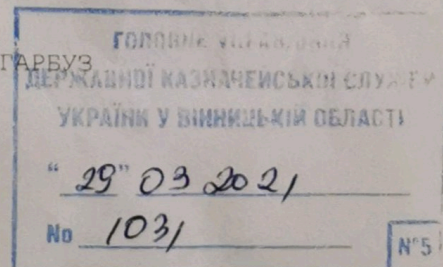 ГОЛОВНЕ УПРАВЛІННЯ
ГАРБУЗ
ДЕРЖАВНОЇ КАЗНАЧЕЙСЬКОЇ СЛУЖБИ
УКРАЇНИ У ВІННИЦЬКІЙ ОБЛАСТІ
"29" 03 2021
№ 1031
N°5